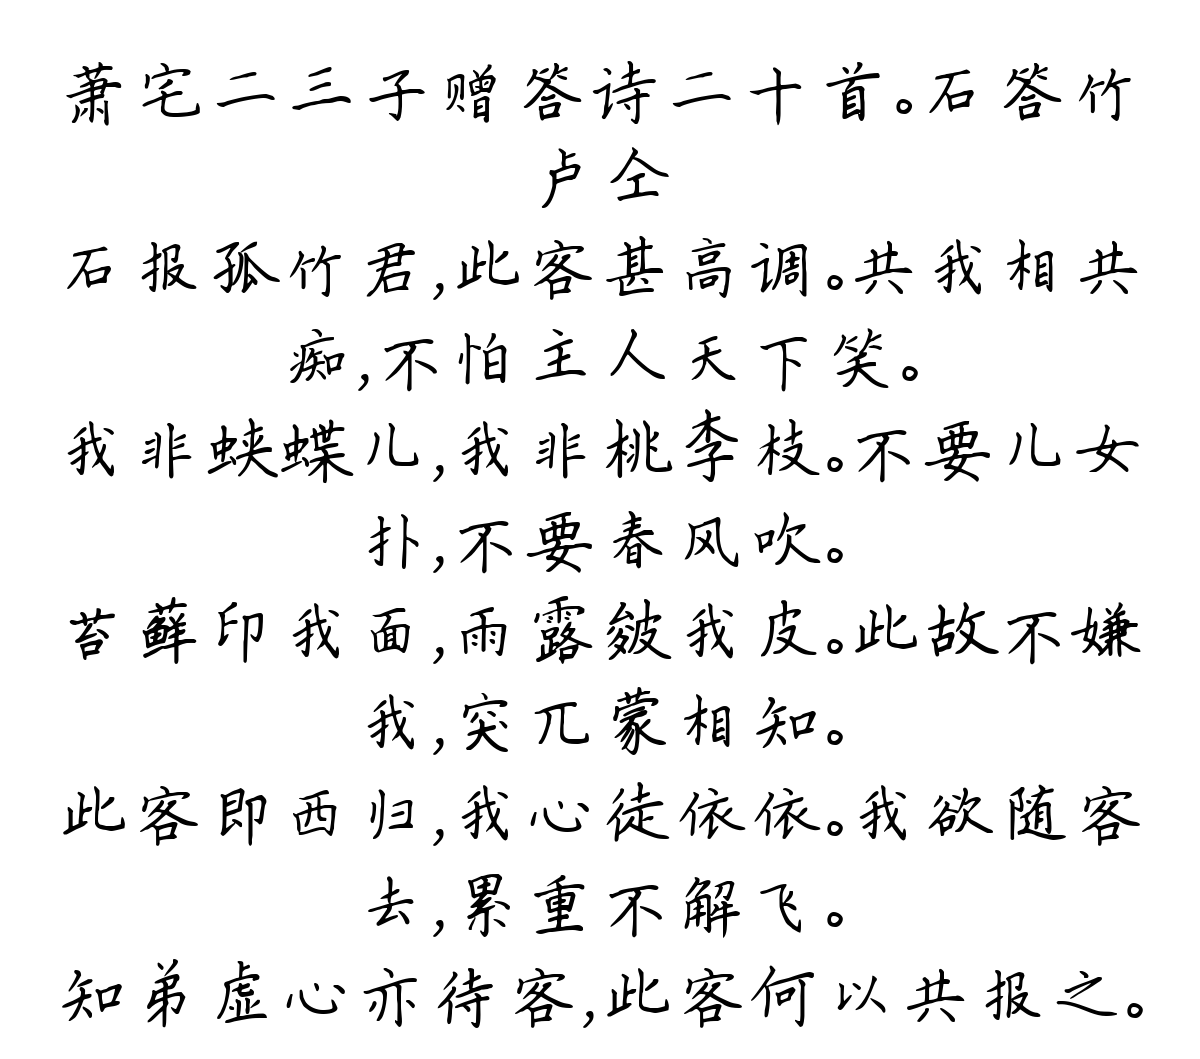 萧宅二三子赠答诗二十首。石答竹
卢仝
石报孤竹君,此客甚高调。共我相共
痴,不怕主人天下笑。
我非蛱蝶儿,我非桃李枝。不要儿女
扑,不要春风吹。
苔藓印我面,雨露皴我皮。此故不嫌
我,突兀蒙相知。
此客即西归,我心徒依依。我欲随客
去,累重不解飞。
知弟虚心亦待客,此客何以共报之。